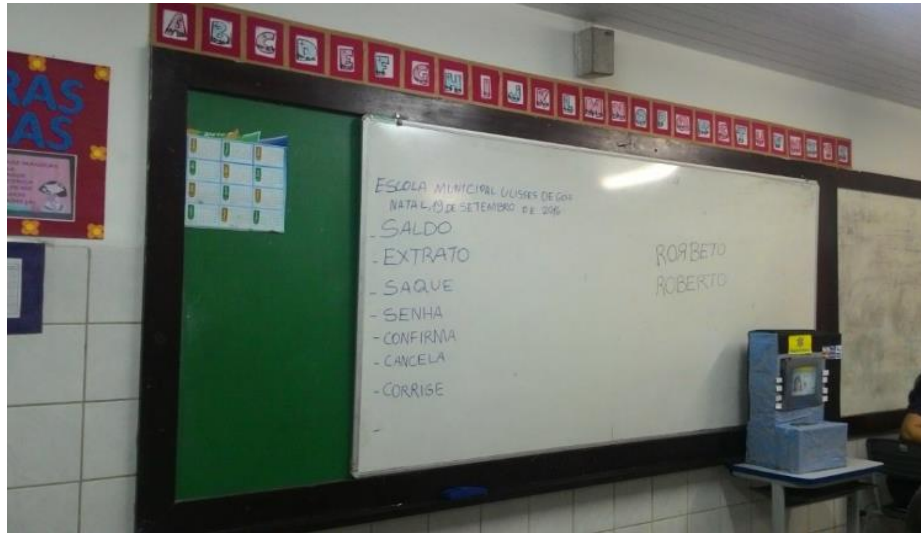 A B C D E F G H I J K L M N O P Q R S T U V W X Y Z
RAS
AS
ESCOLA MUNICIPAL ULISSES DE GOIS
NATAL, 19 DE SETEMBRO DE 2016
- SALDO
- EXTRATO
- SAQUE
- SENHA
- CONFIRMA
- CANCELA
- CORRIGE
-
RORBETO
ROBERTO